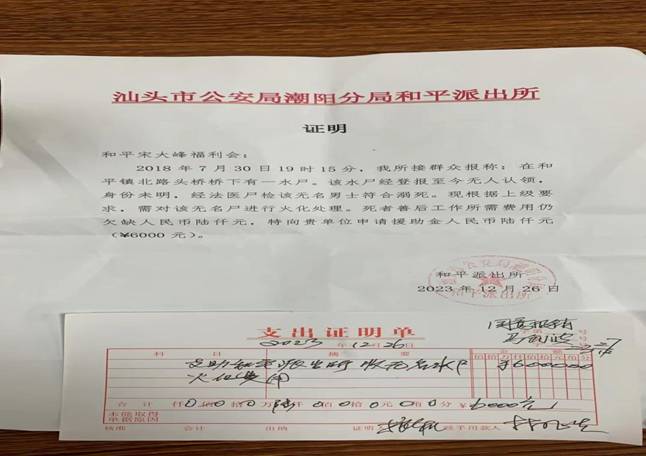 汕头市公安局潮阳分局和平派出所
证明
和平宋大峰福利会：
2018年7月30日19时15分，我所接群众报称：在和
平镇北路头桥桥下有一水尸。该水尸经登报至今无人认领，
身份未明，经法医尸检该无名男士符合溺死。现根据上级要
求，需对该无名尸进行火化处理。死者善后工作所需费用仍
欠缺人民币陆仟元，特向贵单位申请援助金人民币陆仟元
（¥6000元）。
和平派出所
2023年12月26日
支出证明单
2023年12月26日
科目 摘要 百十万千百十元角分
支助和平派出所 收无名水尸 ¥600000
火化费用
合计 仟 佰 拾 万 陆仟0佰0拾0元0角0分 ¥6000元
未能取得
单据原因
核准 会计 出纳 证明 经手用款人